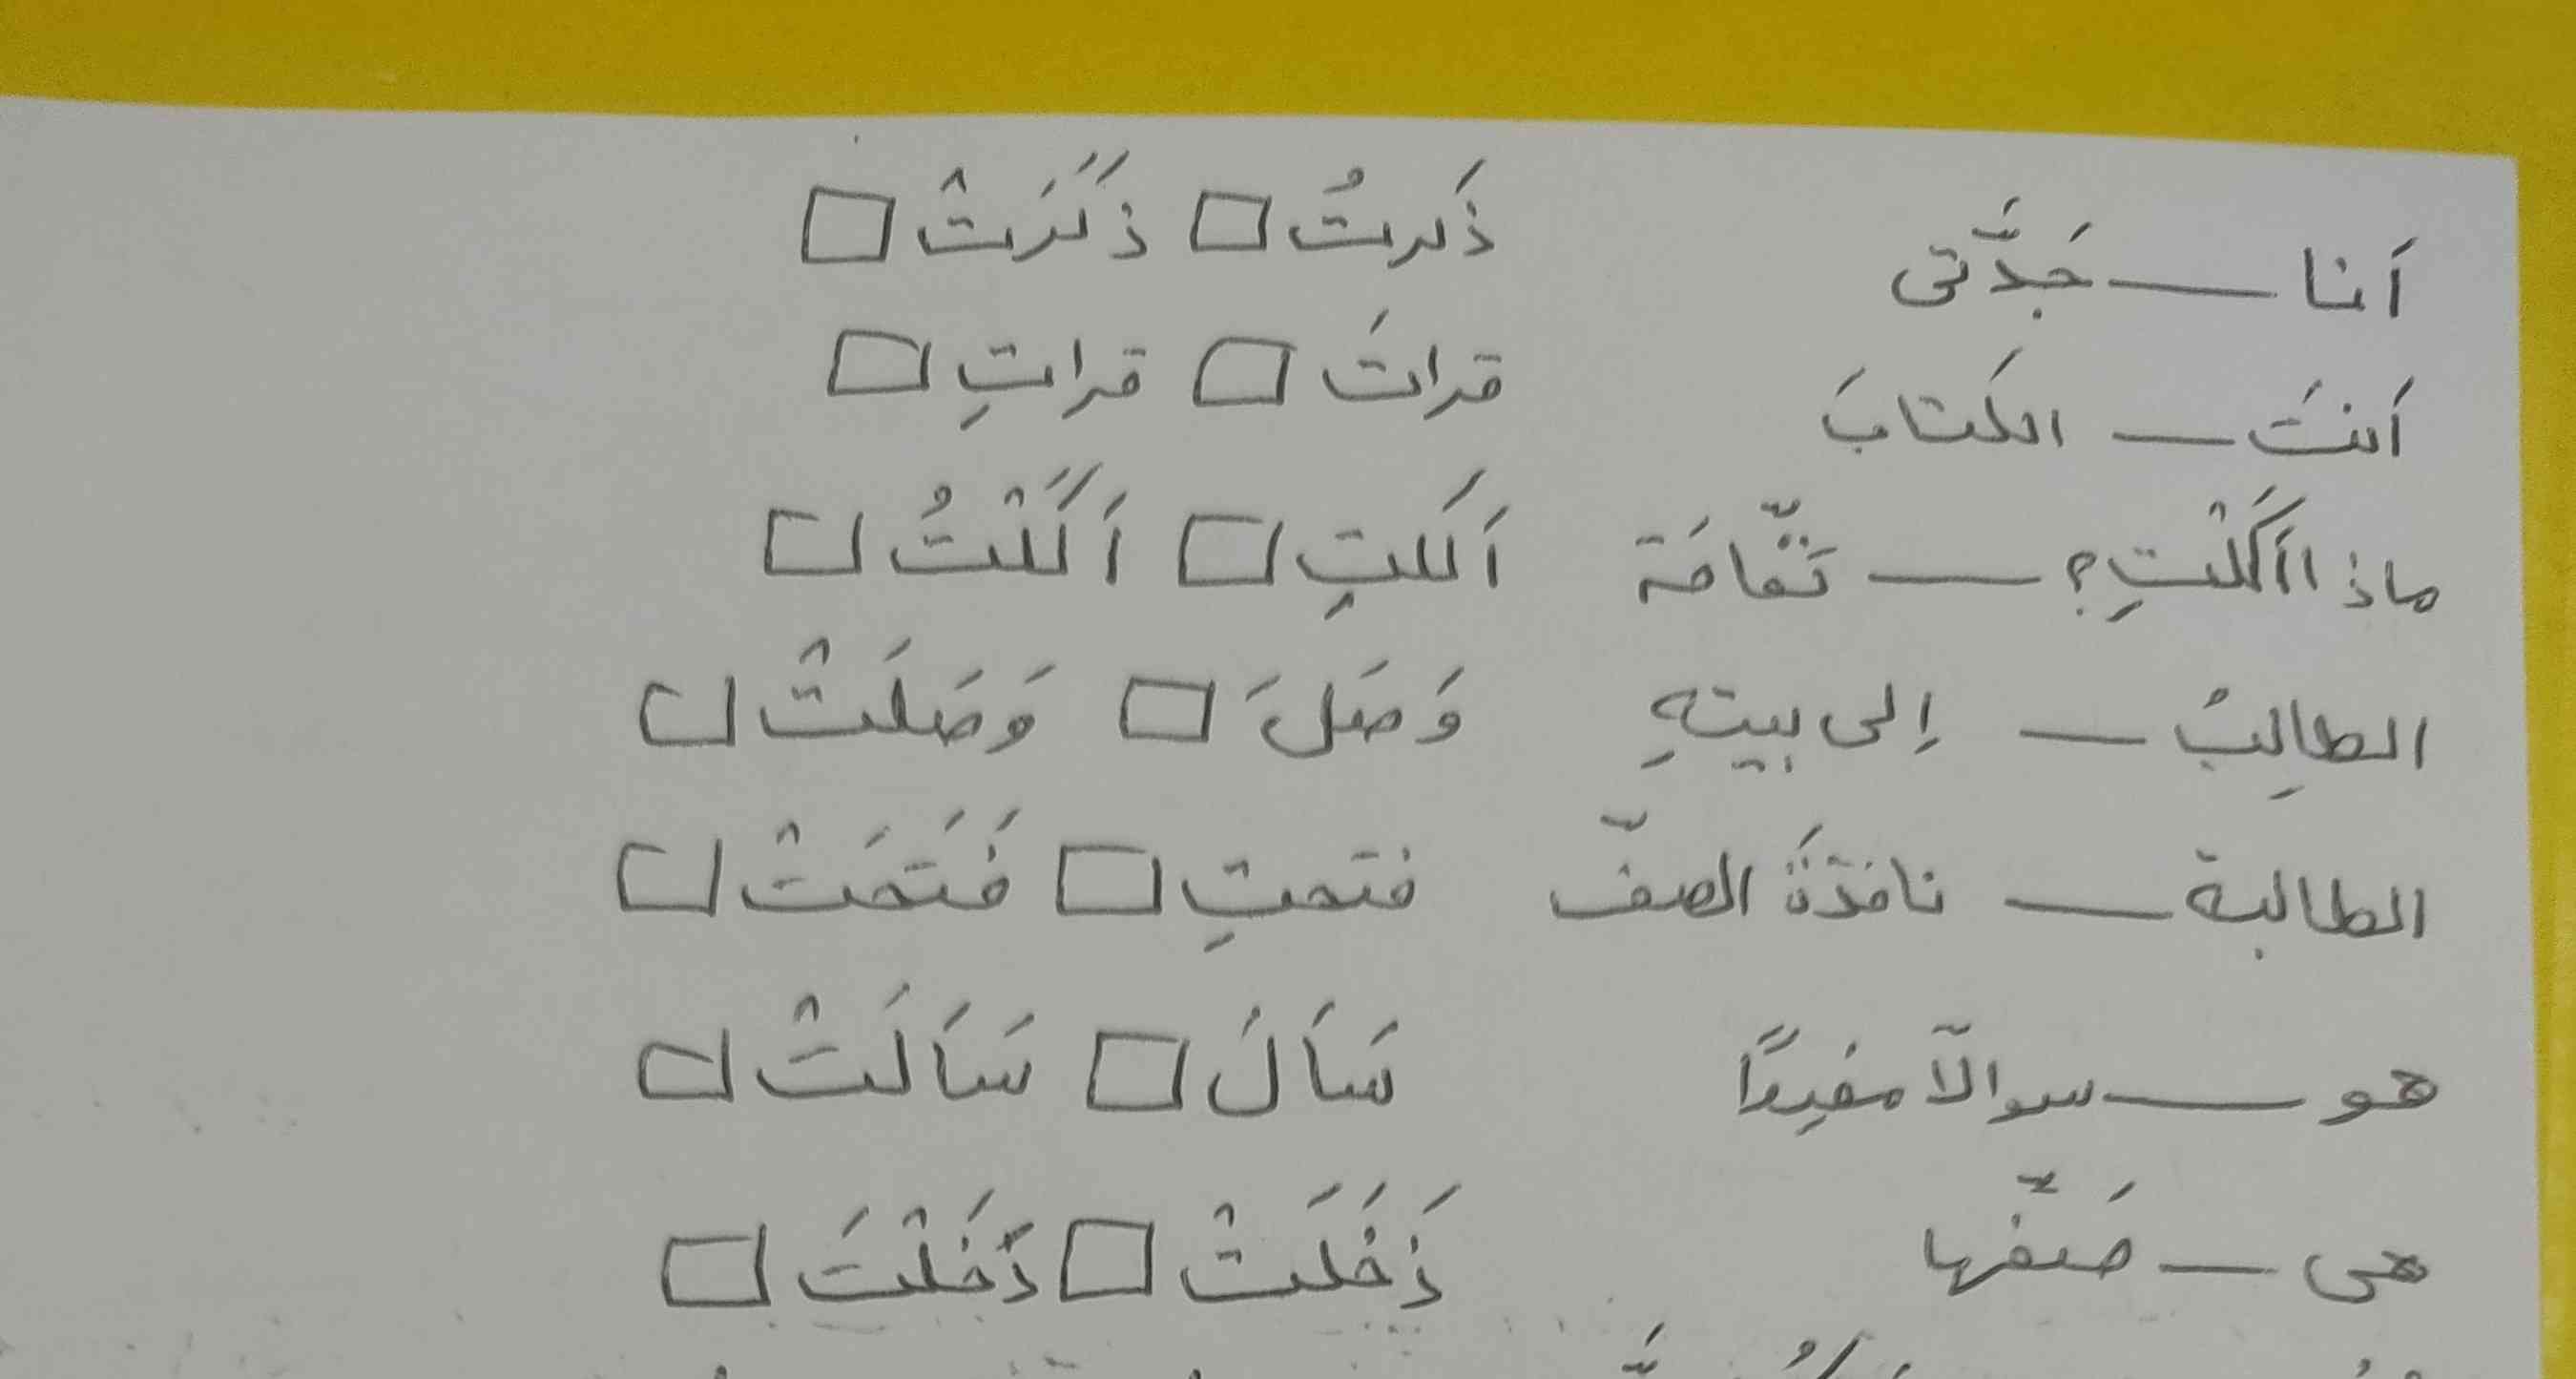 أَنا ـــــ جَدَّتی ذَکرتُ □ ذَکَرَتْ □
أَنتَ ـــــ الکتابَ قراتَ □ قراتِ □
ماذا اَکَلْتِ؟ ـــــ تفّاحَة اَکَلتِ □ اَکَلْتُ □
الطالِبُ ـــــ إلی بیتِهِ وَصَلَ □ وَصَلَتْ □
الطالبة ـــــ نافذَةَ الصفّ فتحتِ □ فَتَحَتْ □
هو ـــــ سوالاّ مفیداً سَاَلَ □ سَاَلَتْ □
هی ـــــ صَفّها ذَخَلَتْ □ دَخَلْتَ □